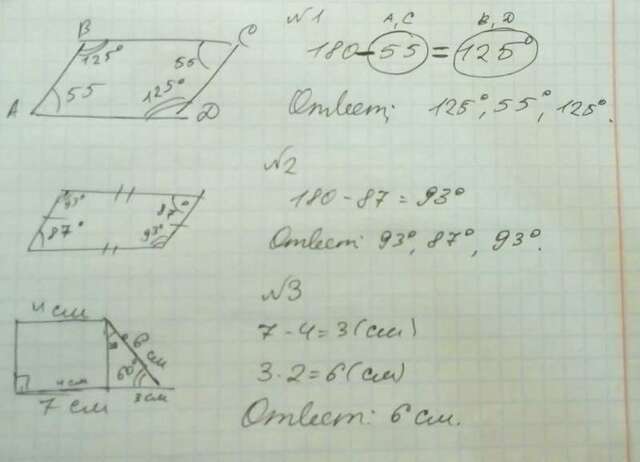 B
C
125°
55
55
125°
A
D
N1
A, C
B, D
180-55=125°
Ответ; 125°, 55°, 125°.
93°
87°
87°
93°
N2
180-87=93°
Ответ: 93°, 87°, 93°.
4 см
6 см
60°
4 см
3 см
7 см
N3
7-4=3(см)
3·2=6(см)
Ответ: 6 см.